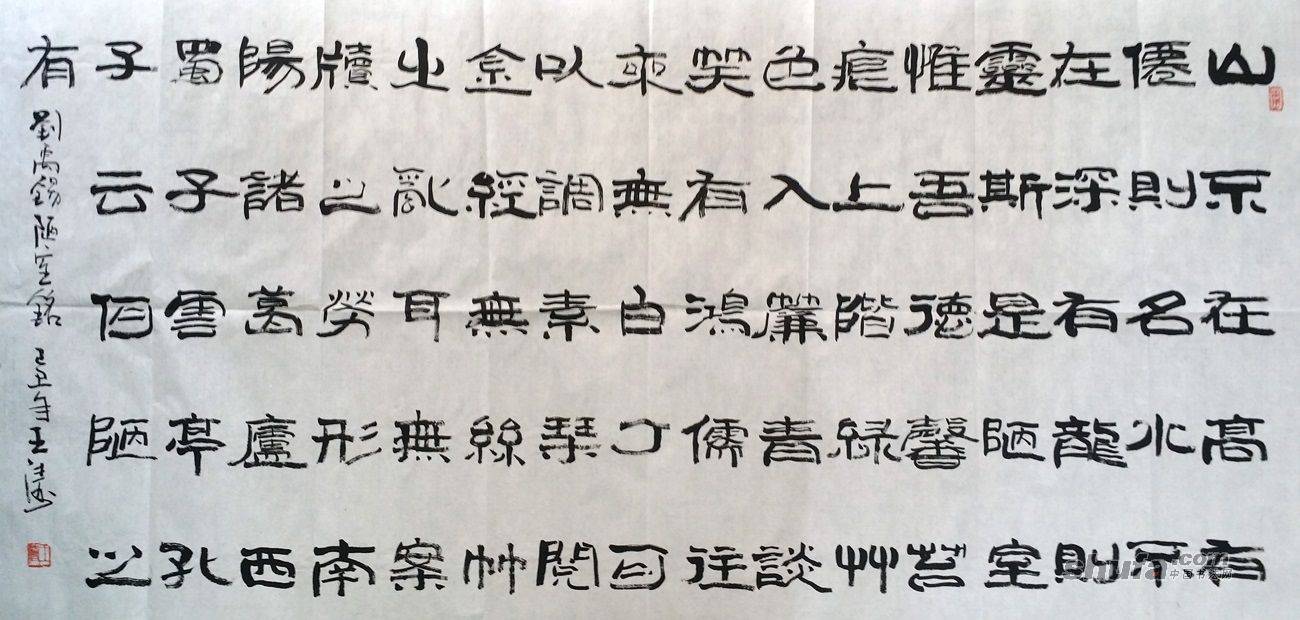 山不在高有
僊則名水不
在深有龍則
靈斯是陋室
惟吾德馨苔
痕上階綠艸
色入簾青談
笑有鴻儒往
來無白丁可
以調素琴閱
金經無絲竹
之亂耳無案
牘之勞形南
陽諸葛廬西
蜀子雲亭孔
子云何陋之
有 劉禹錫陋室銘 己丑年王濤
中国书法网